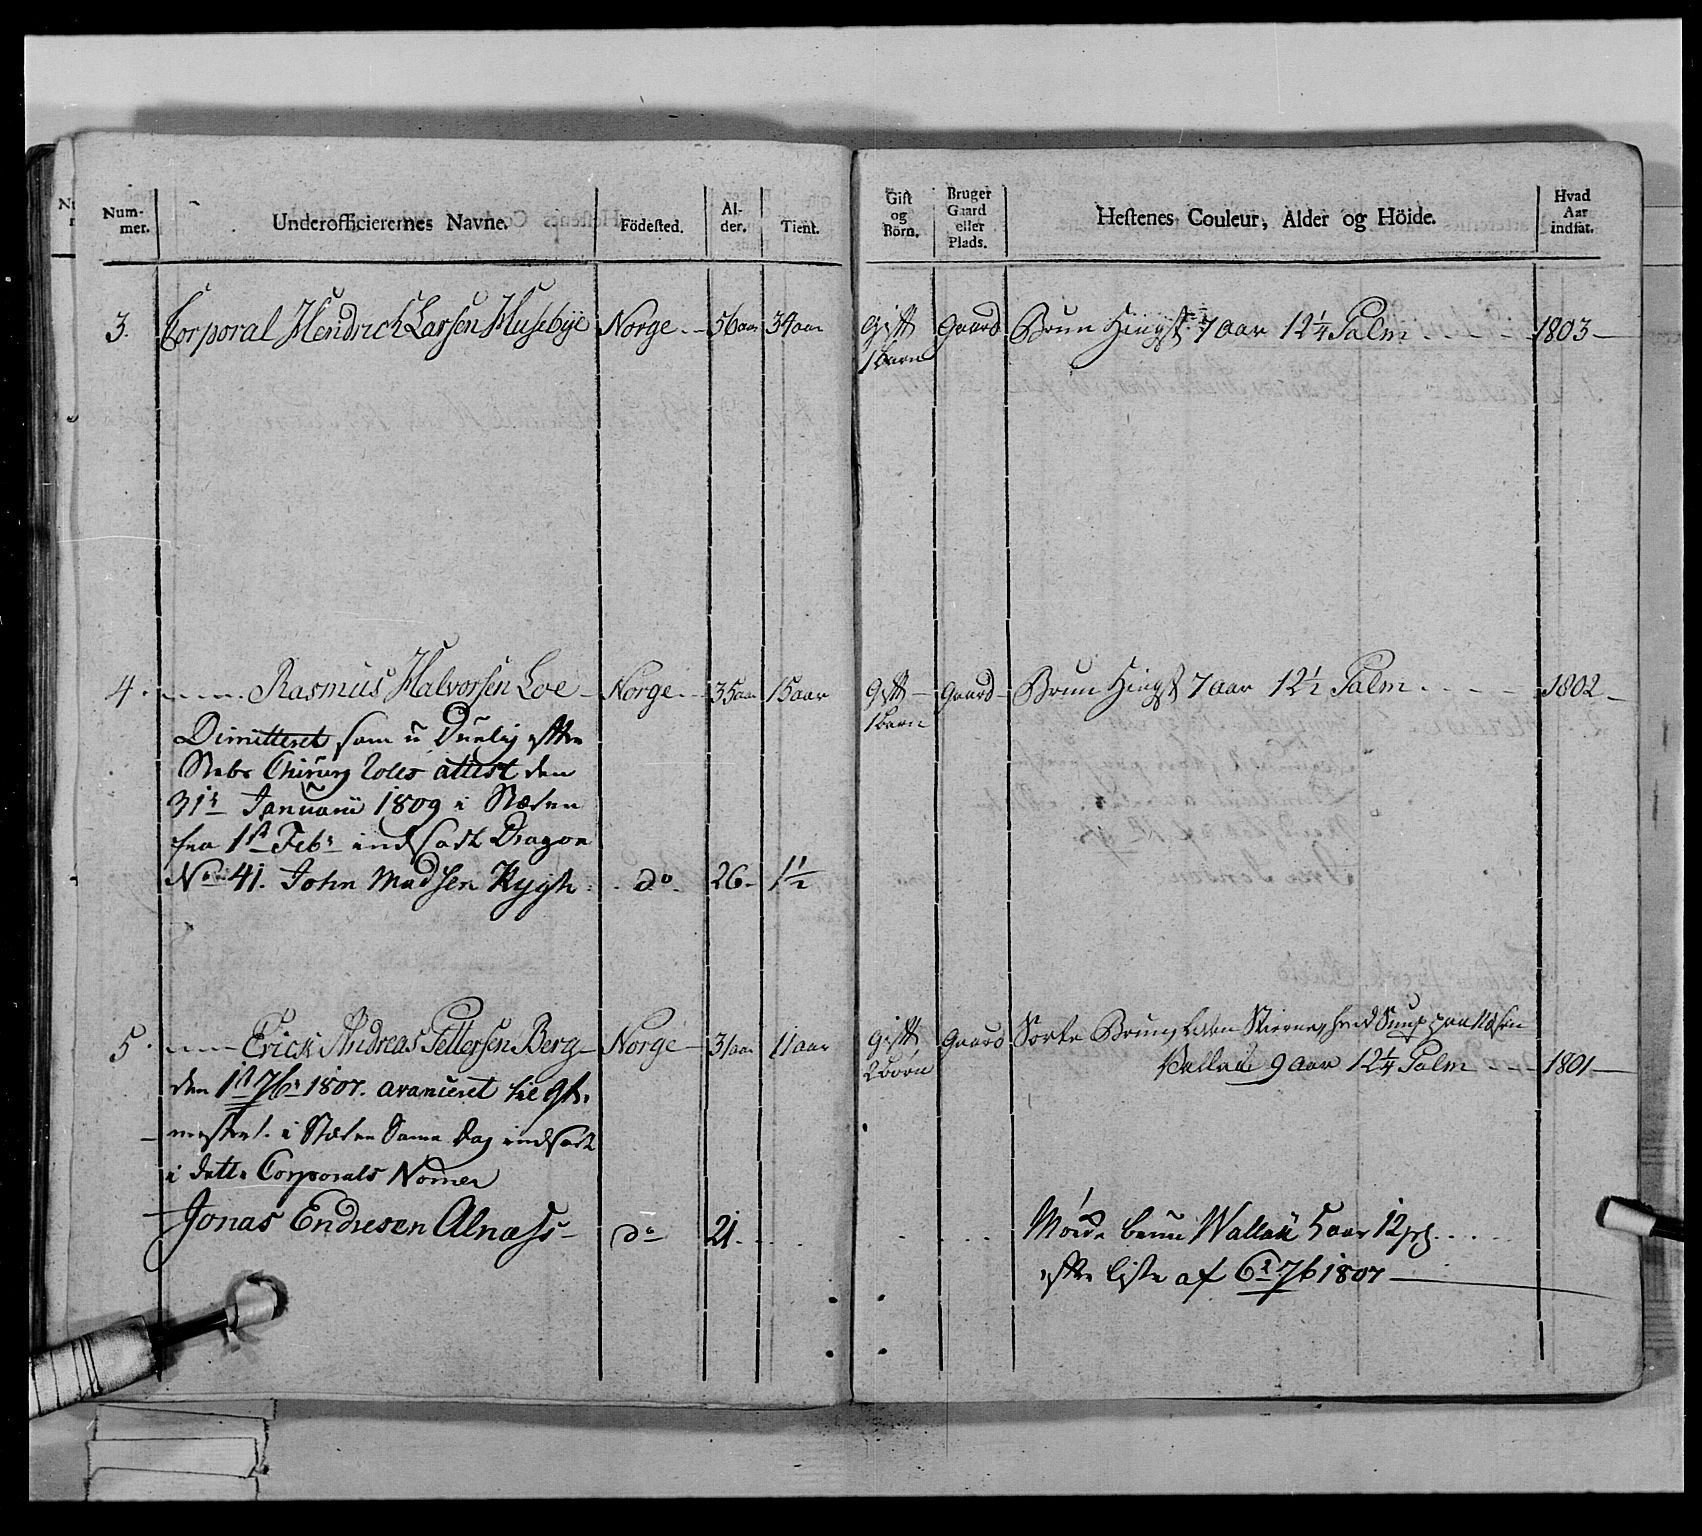 Num-
mer.
Underofficierernes Navne.
Födested.
Al-
der.
Tient.
Gift
og
Börn.
Bruger
Gaard
eller
Plads.
Hestenes Couleur, Alder og Höide.
Hvad
Aar
indsat.
3. Corporal Hendrich Larsen Musebye Norge 56 aar 34 aar Gift Gaard Brun Hingst 7 aar 12¼ Palm 1803
1 barn
4. Rasmus Halvorsen Loe Norge 35 aar 15 aar Gift Gaard Brun Hingst 7 aar 12½ Palm 1802
1 barn
Dimitteret som u Duelig efter
Stabs Chirurg attest den
31te Januarii 1809 i Stæden
fra 1st Febr indsadt Dragon
No 41. John Madsen Rygh do 26 1½
5. Erick Andreas Pettersen Berg Norge 31 aar 11 aar Gift Gaard Sorte Brun, liden Stierne, hvid
2 börn
Vallak 9 aar 12¼ Palm 1801
den 1st 7br 1807. avanceret til
i Stæden Same Dag indsadt
i dette Corporals Nomer
Jonas Endresen Alnæss do 21 Mörke brun Wallak 5 aar 12 pl
efter liste af 6te 7b 1807